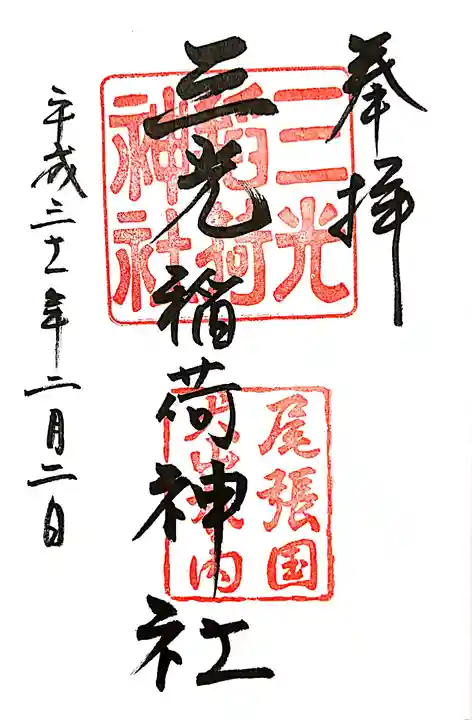 奉拝
三光
稲荷
神社
三光稲荷神社
尾張国
犬山城内
平成三十一年二月二日